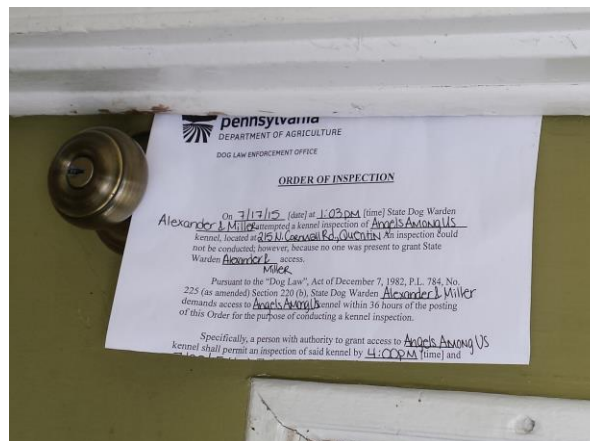 pennsylvania
DEPARTMENT OF AGRICULTURE
DOG LAW ENFORCEMENT OFFICE
ORDER OF INSPECTION
On 7/17/15 [date] at 1:03 PM [time] State Dog Warden
Alexander & Miller attempted a kennel inspection of Angels Among Us
kennel, located at 215 N. Cornwall Rd, Quentin An inspection could
not be conducted; however, because no one was present to grant State
Warden Alexander & access.
Miller
Pursuant to the "Dog Law", Act of December 7, 1982, P.L. 784, No.
225 (as amended) Section 220 (b), State Dog Warden Alexander & Miller
demands access to Angels Among Us kennel within 36 hours of the posting
of this Order for the purpose of conducting a kennel inspection.
Specifically, a person with authority to grant access to Angels Among Us
kennel shall permit an inspection of said kennel by 4:00PM [time] and